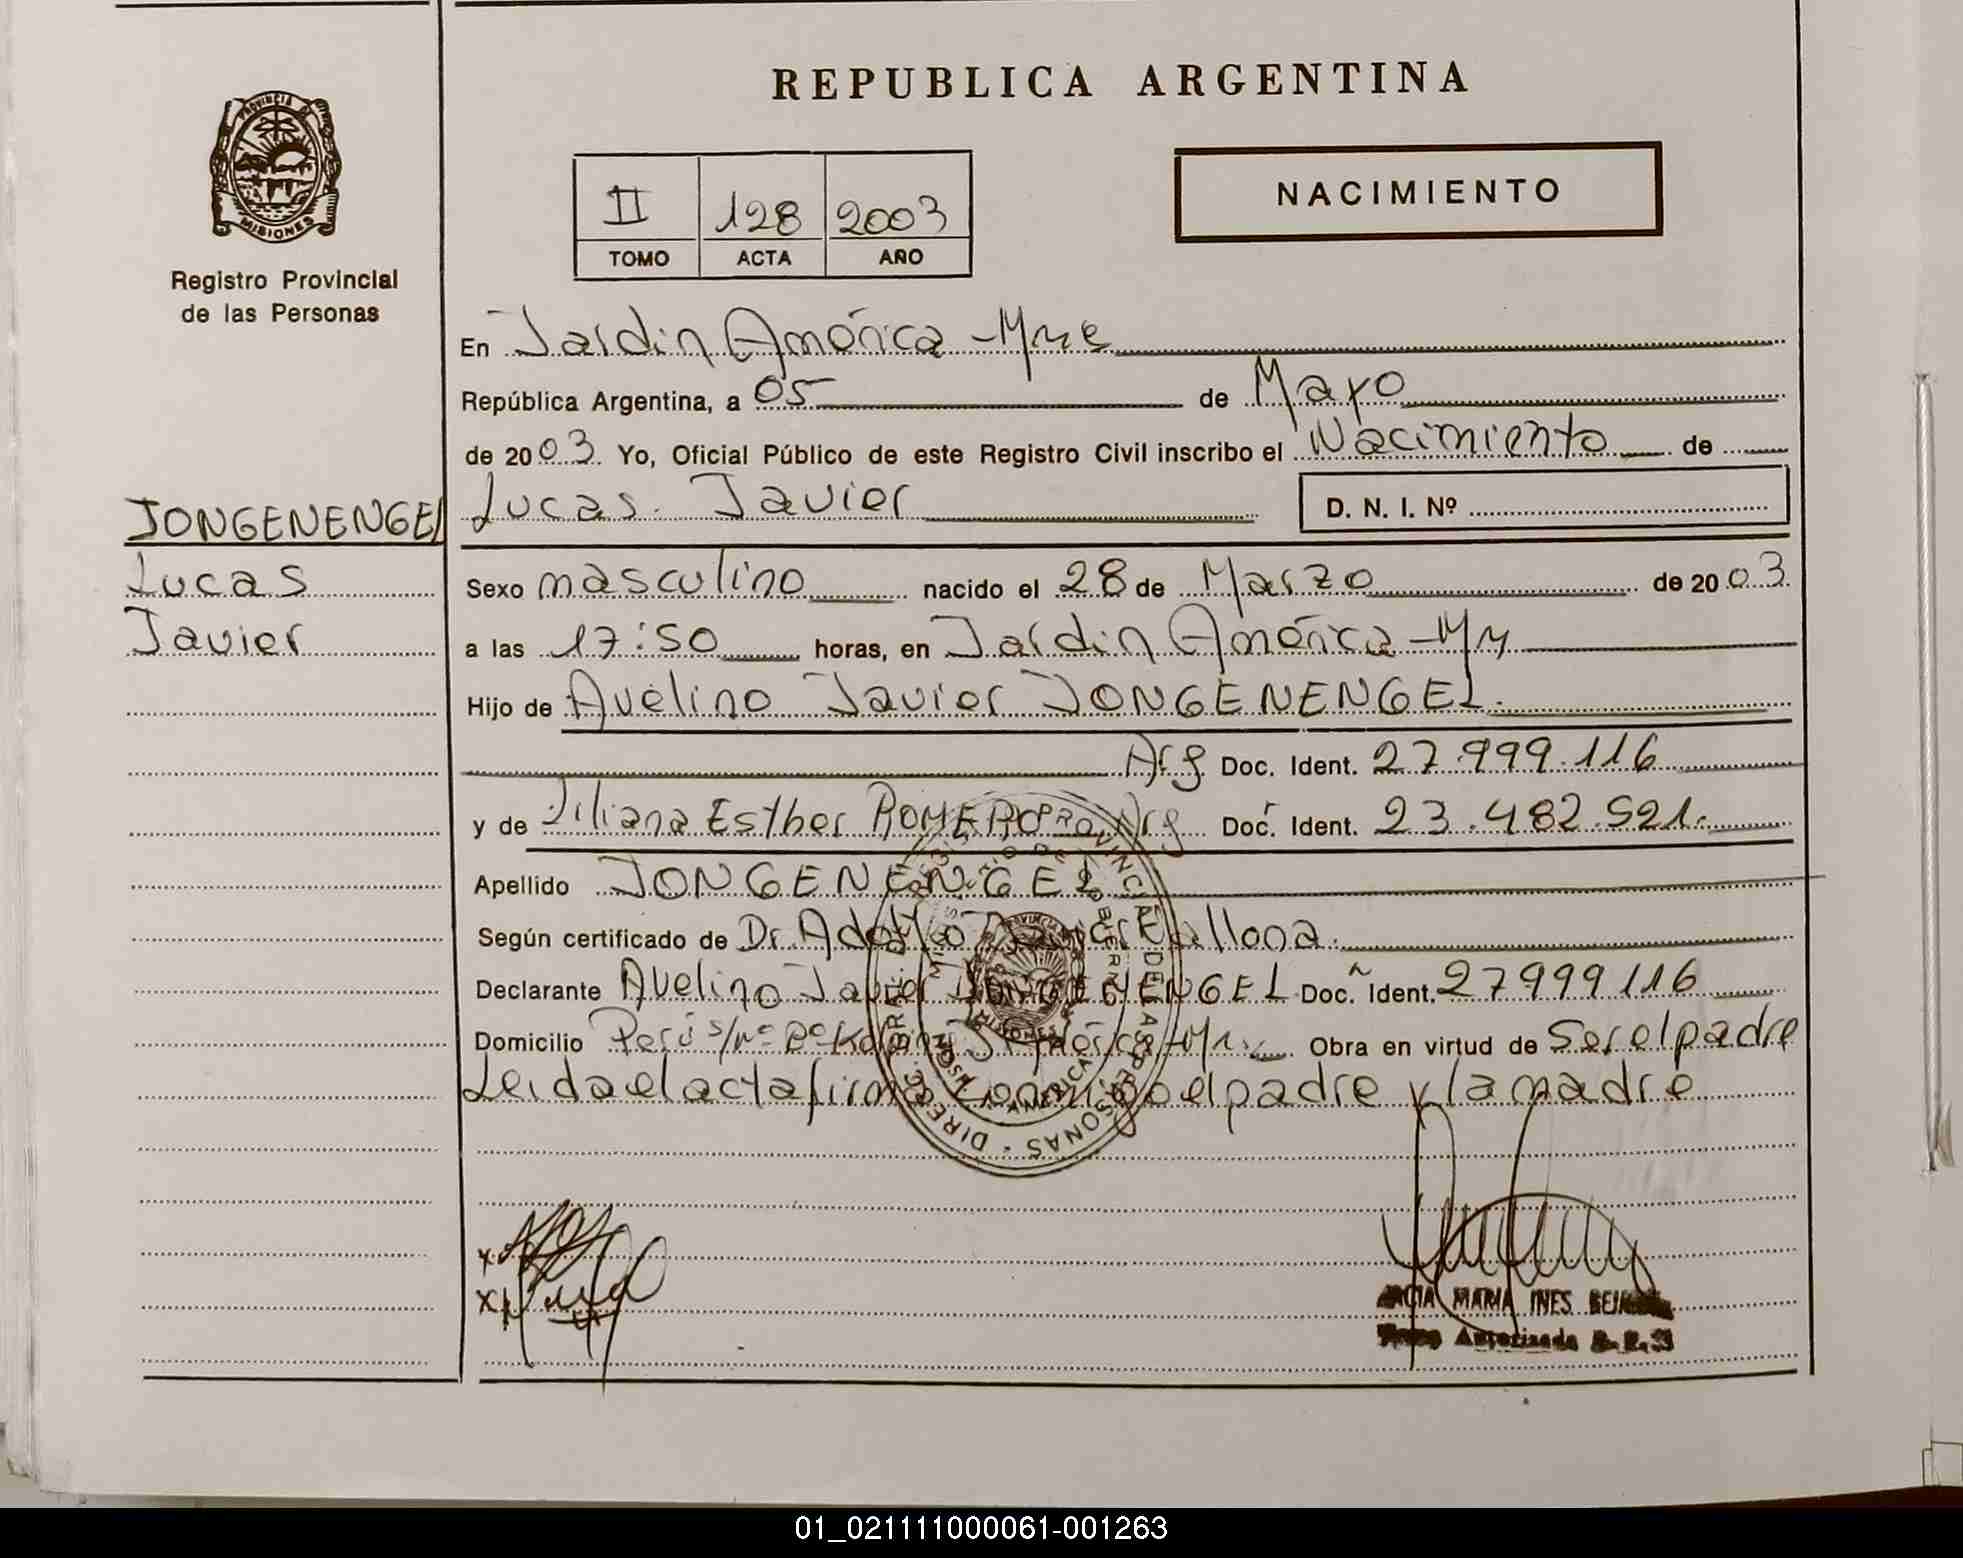 REPUBLICA ARGENTINA
PROVINCIA DE
MISIONES
Registro Provincial
de las Personas
II 128 2003
TOMO ACTA AÑO
NACIMIENTO
En Jardin América - Mnes
República Argentina, a 05 de Mayo
de 2003. Yo, Oficial Público de este Registro Civil inscribo el Nacimiento de
JONGENENGEL
Lucas
Javier
Lucas Javier D. N. I. Nº
Sexo masculino nacido el 28 de Marzo de 2003.
a las 17:50 horas, en Jardin América - Mn
Hijo de Avelino Javier JONGENENGEL.
Arg Doc. Ident. 27.999.116
y de Liliana Esther ROMERO Arg Doc. Ident. 23.482.521.
Apellido JONGENENGEL
Según certificado de Dr. Adolfo
Declarante Avelino Javier JONGENENGEL Doc. Ident. 27999116
Domicilio Perú s/nº Bº J. América - Mn. Obra en virtud de Ser el padre
Leida el acta firma conmigo el padre y la madre
MARIA INES
Autorizada
01_021111000061-001263